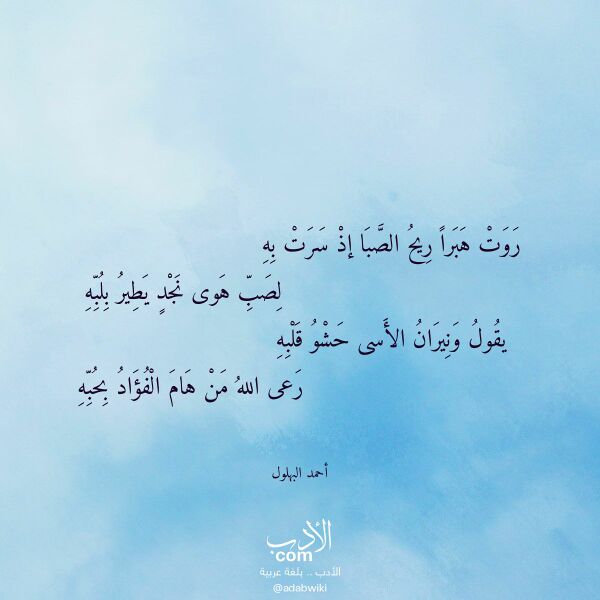 رَوَتْ هَبَراً رِيحُ الصَّبَا إذْ سَرَتْ بِهِ
لِصَبِّ هَوى نَجْدٍ يَطِيرُ بِلُبِّهِ
يقُولُ وَنِيرَانُ الأَسى حَشْوُ قَلْبِهِ
رَعى اللهُ مَنْ هَامَ الْفُؤَادُ بِحُبِّهِ
أحمد البهلول
الأدب
com
الأدب .. بلغة عربية
@adabwiki